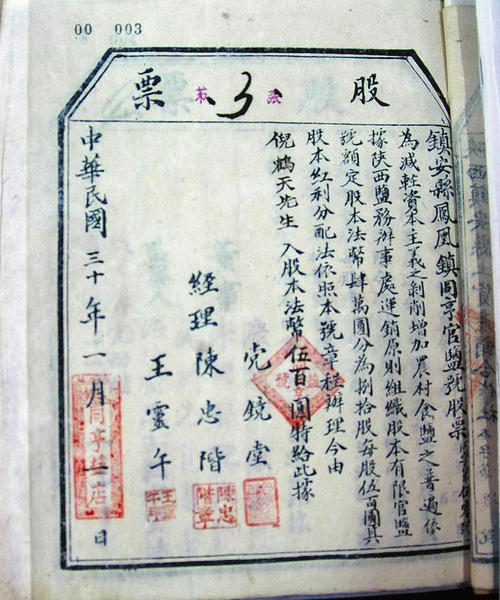 00 003
股 第 3 張 票
鎮安縣鳳凰鎮同亨官鹽號股票
為減輕資本主義之剥削增加農村食鹽之普遍係
據陝西鹽務辦事處運銷原則組織股本有限官鹽
號額定股本法幣肆萬圓分為捌拾股每股伍百圓其
股本紅利分配法依照本號章程辦理今由
倪鶴天先生 入股本法幣伍百圓特給此據
党鏡堂
經理 陳忠階
王靈午
中華民國三十年一月 日